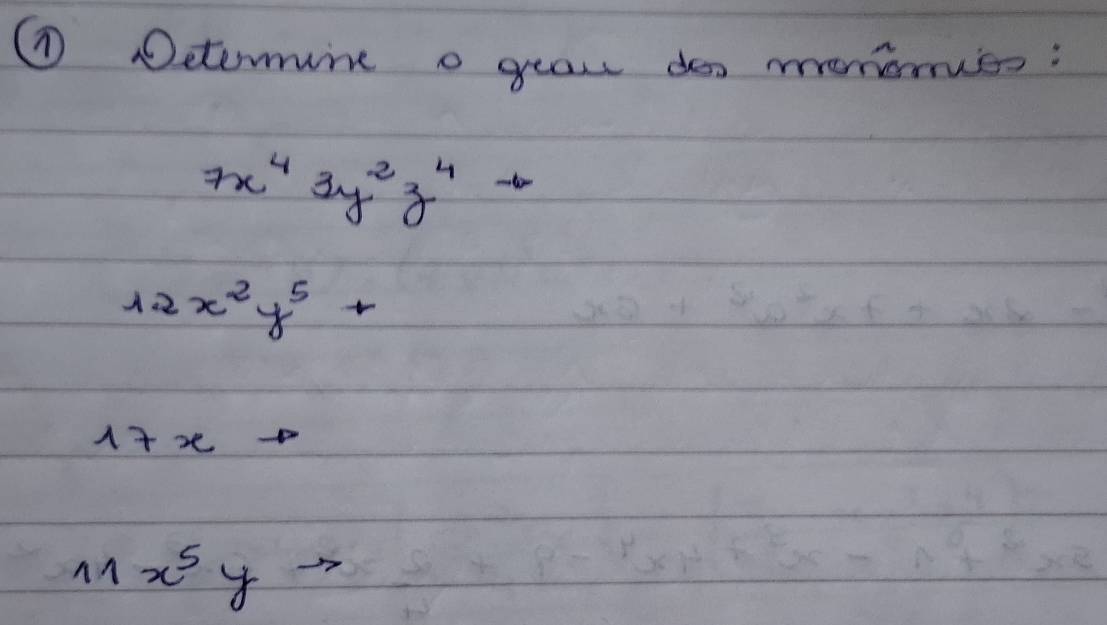 ① Determine o grau dos monômios:
7x⁴ 3y² z⁴ →
12x²y⁵ →
17x →
11x⁵y →